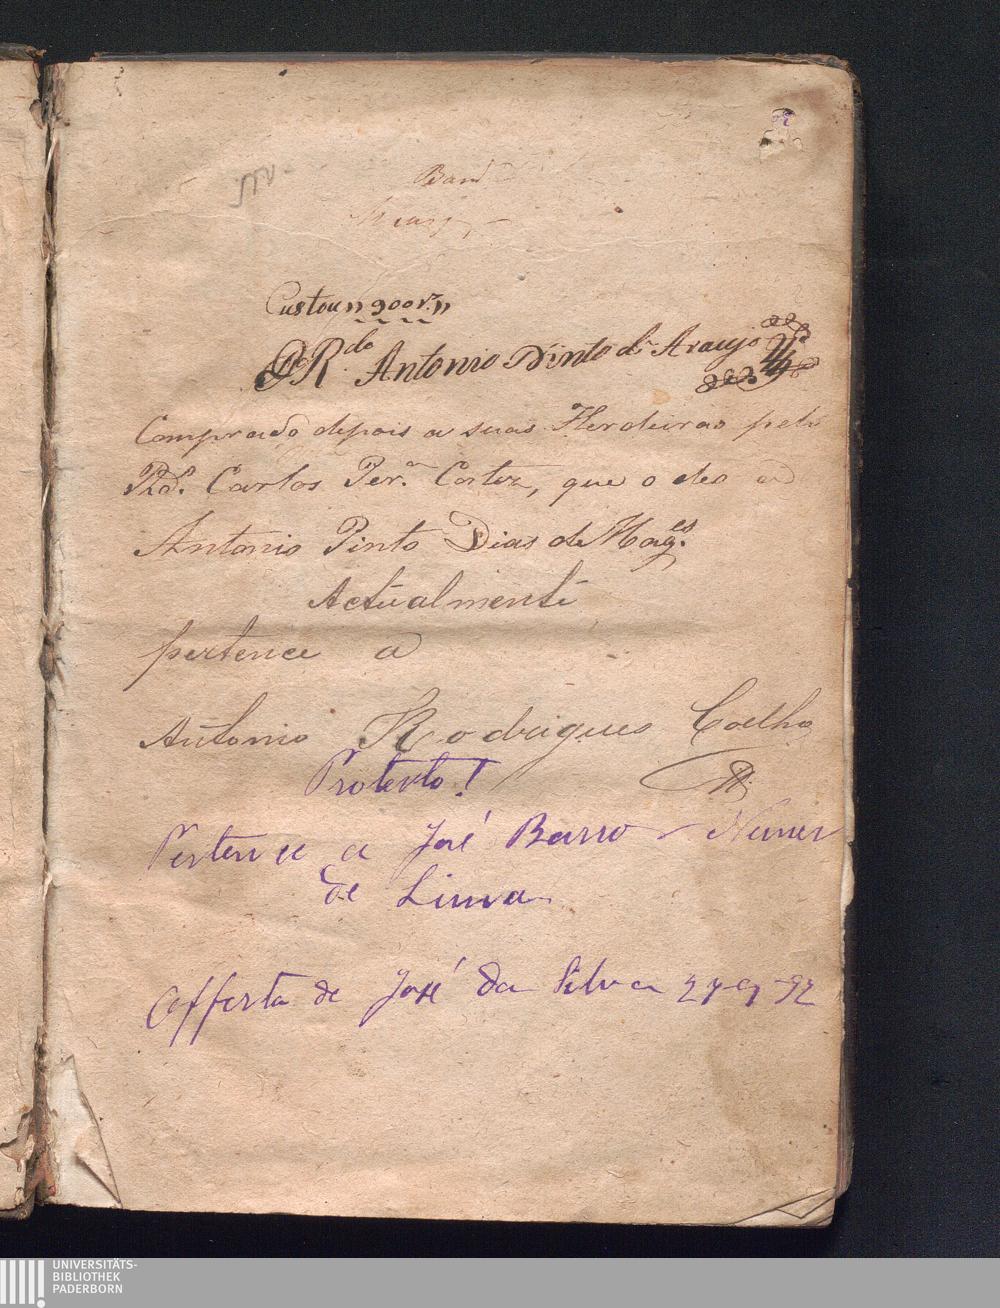 Band
Custou " 900 r.s "
O R.do Antonio Pinto d'Araujo
Comprado depois a suas Herdeiras pelo
Rd.o Carlos Per.a Cortez, que o deo a
Antonio Pinto Dias de Mag.es
Actualmente
pertence a
Antonio Rodrigues Coelho
Protesto!
Pertence a José Barros Nunes
de Lima
Offerta de José da Silva 27-9-92
UNIVERSITÄTS-
BIBLIOTHEK
PADERBORN